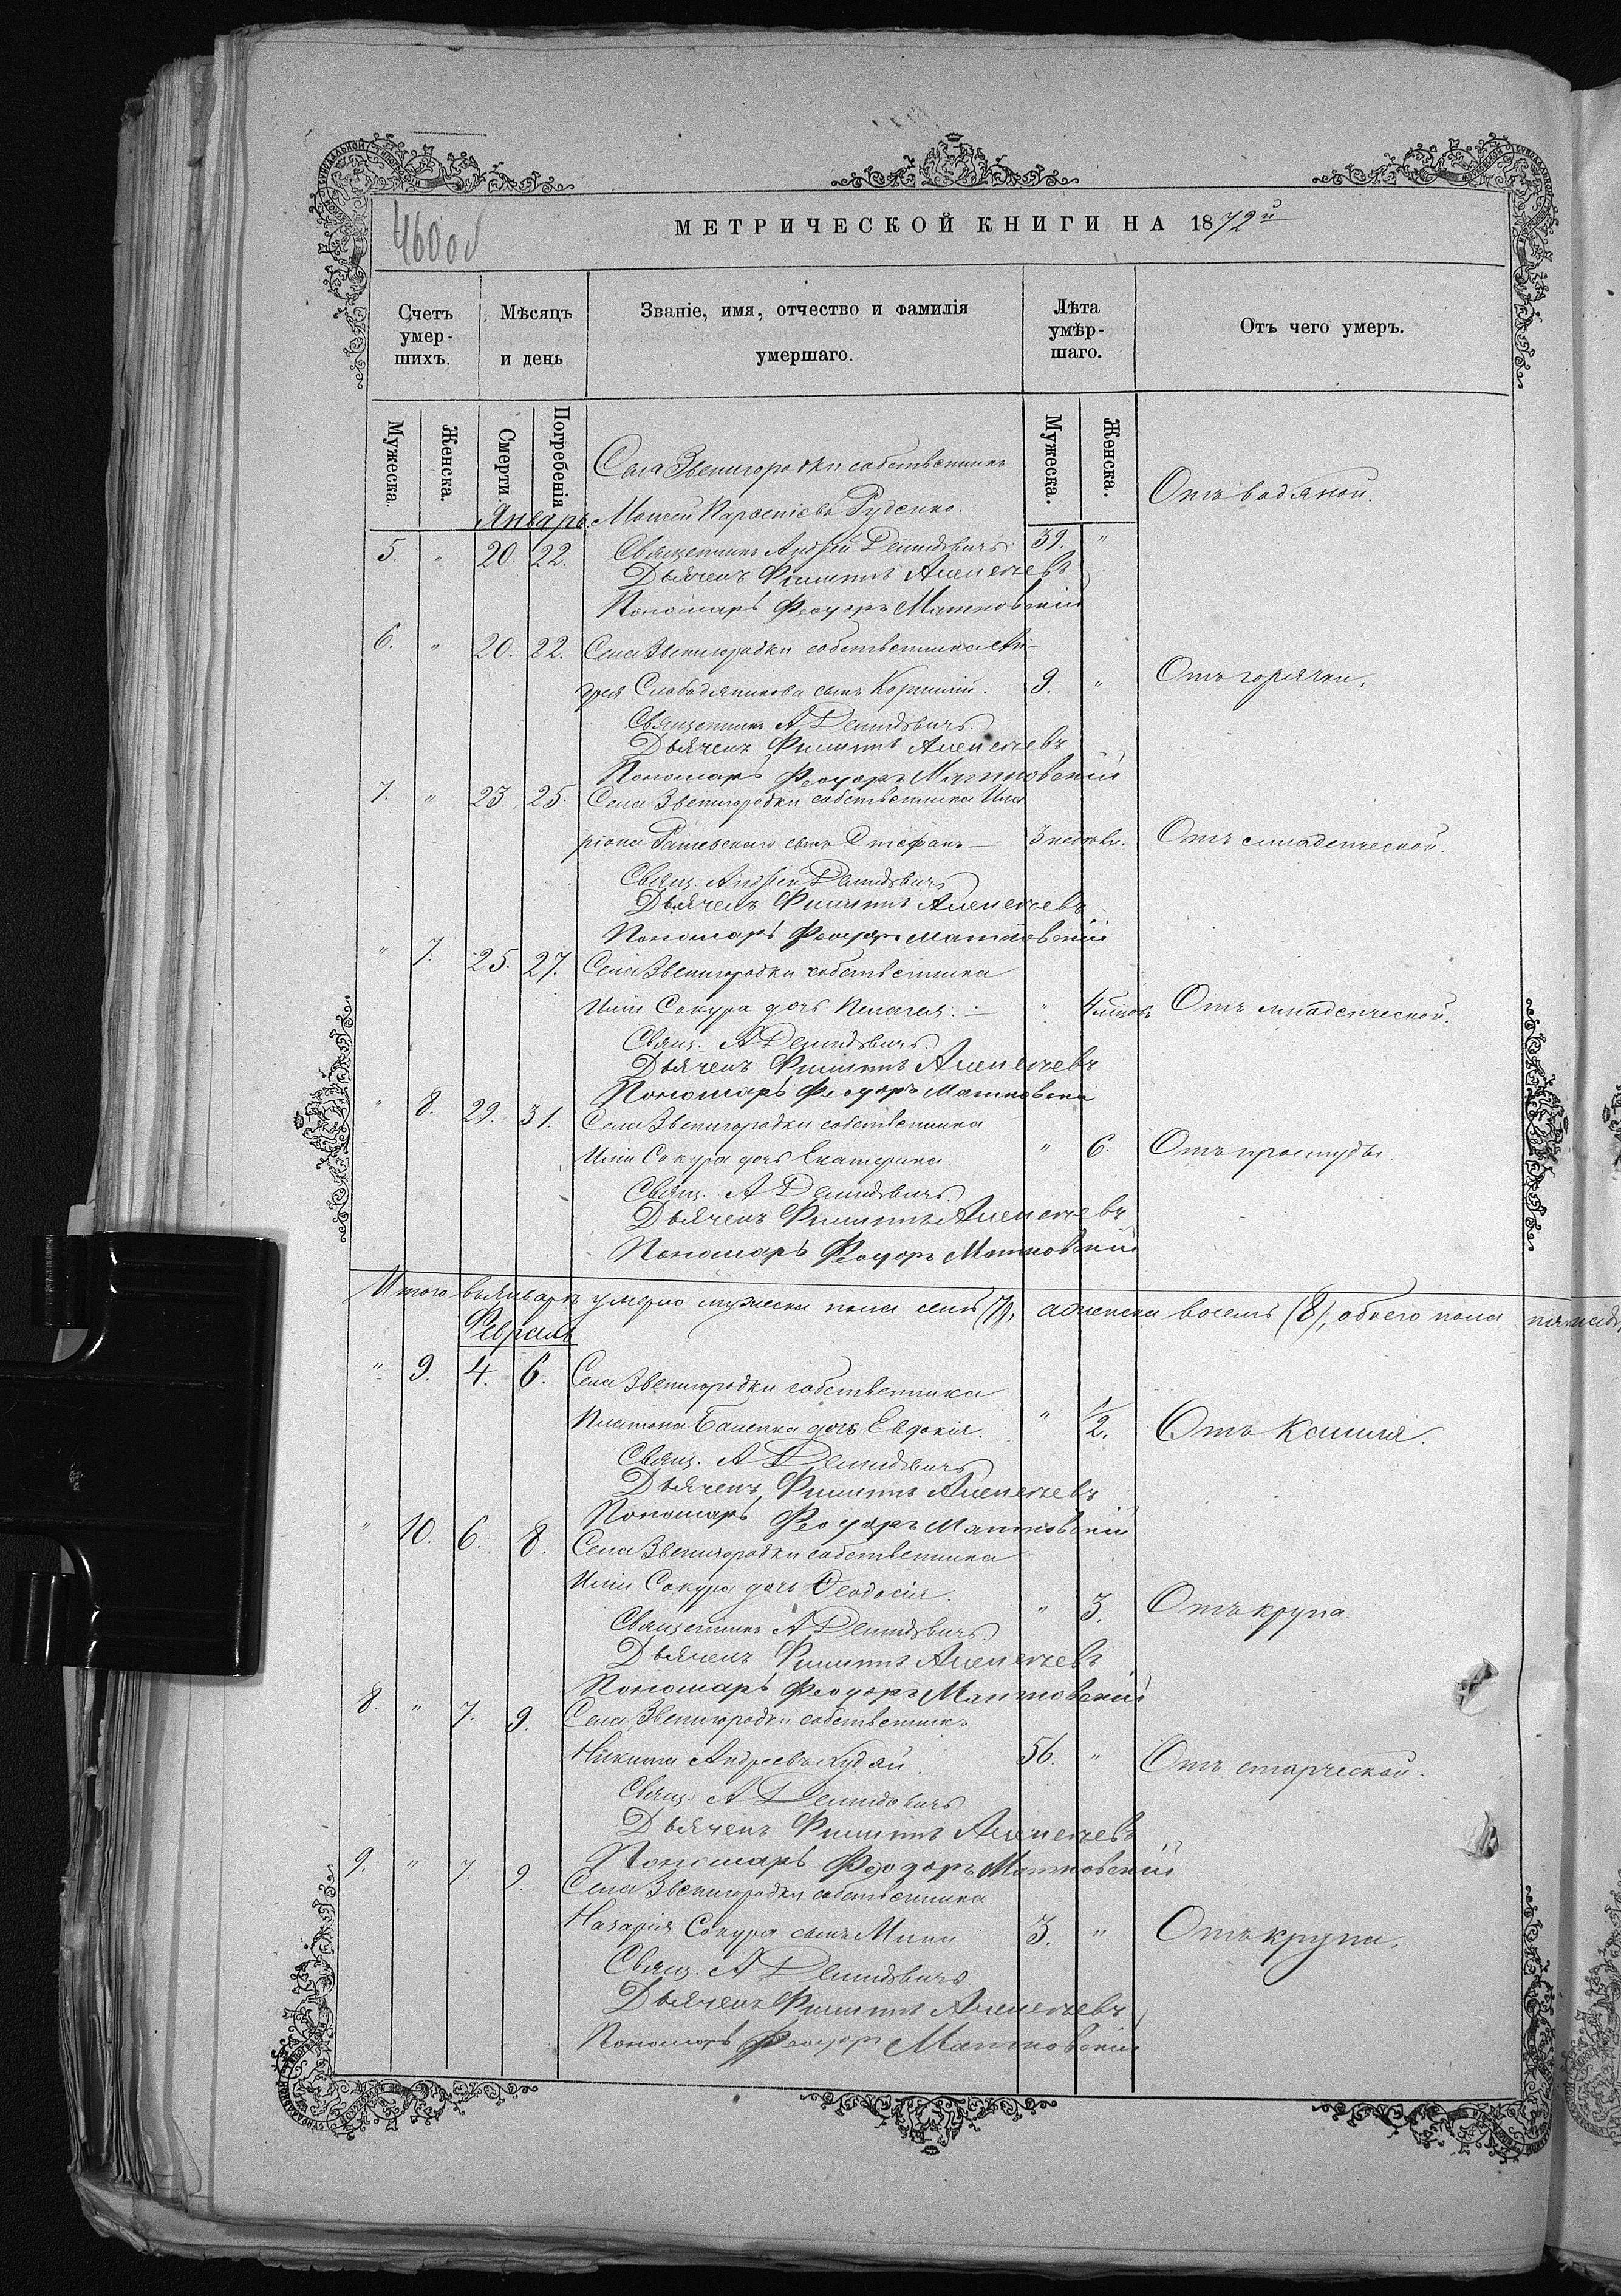 460об
МЕТРИЧЕСКОЙ КНИГИ НА 1872й
Счетъ умер-шихъ.
Мѣсяцъ и день
Званіе, имя, отчество и фамилія умершаго.
Лѣта умѣр-шаго.
Отъ чего умеръ.
Мужеска. Женска. Смерти. Погребенія Мужеска. Женска.
Января
Села Звенигородки собственникъ
5. " 20. 22. Моисей Руденко. 39. " Отъ водяной.
Священникъ Андрей Демидовичъ
Дьячекъ Филиппъ
Пономарь Феодоръ Матковскій
6. " 20. 22. Села Звенигородки собственника Ан-
дрея сынъ Корнилій. 9. " Отъ горячки.
Священникъ А Демидовичъ
Дьячекъ Филиппъ
Пономарь Феодоръ Матковскій
7. " 23. 25. Села Звенигородки собственника Ила
ріона сынъ Стефанъ — 3 Отъ младенческой.
Свящ. Андрей Демидовичъ
Дьячекъ Филиппъ
Пономарь Феодоръ Матковскій
" 7. 25. 27. Села Звенигородки собственника
Иліи Сокура дочь Пелагея. — " 4 Отъ младенческой.
Свящ. А Демидовичъ.
Дьячекъ Филиппъ
Пономарь Феодоръ Матковскій
" 8. 29. 31. Села Звенигородки собственника
Иліи Сокура дочь Екатерина. " 6. Отъ простуды.
Свящ. А Демидовичъ
Дьячекъ Филиппъ
Пономарь Феодоръ Матковскій
Итого въ Январѣ умерло мужеска пола семь (7), а женска восемь (8), обоего пола
Февраль
" 9. 4. 6. Села Звенигородки собственника
Платона дочь Евдокія. " 1/2. Отъ Кашля.
Свящ. А Демидовичъ
Дьячекъ Филиппъ
Пономарь Феодоръ Матковскій
" 10. 6. 8. Села Звенигородки собственника
Иліи Сокура дочь Ѳеодосія. " 3. Отъ крупа.
Священникъ А Демидовичъ
Дьячекъ Филиппъ
Пономарь Феодоръ Матковскій
8. " 7. 9. Села Звенигородки собственникъ
Никита Андреевъ 56. " Отъ старческой.
Свящ. А Демидовичъ
Дьячекъ Филиппъ
Пономарь Феодоръ Матковскій
9. " 7. 9. Села Звенигородки собственника
Назарія Сокура сынъ Мина 3. " Отъ крупа.
Свящ. А Демидовичъ
Дьячекъ Филиппъ
Пономарь Феодоръ Матковскій